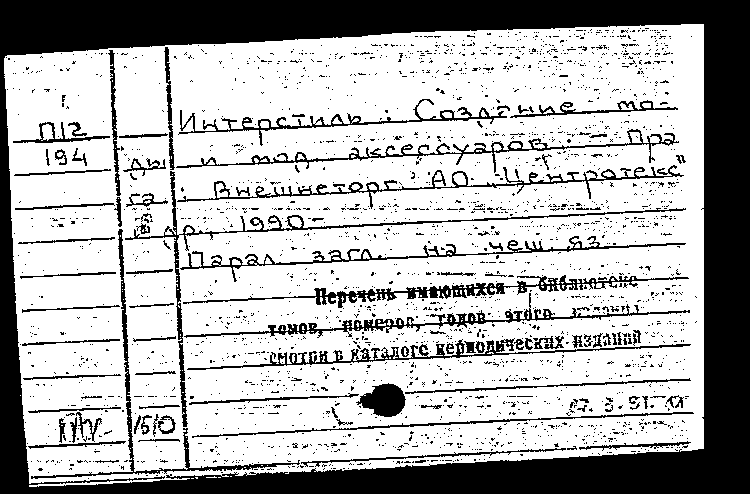 П12
194
Интерстиль : Создание мо-
ды и мод. аксессуаров. – Пра
га : Внешнеторг. АО „Центротекс"
др., 1990-
Парал. загл. на чеш. яз.
Перечень имеющихся в библиотеке
томов, номеров, годов этого издания
смотри в каталоге периодических изданий